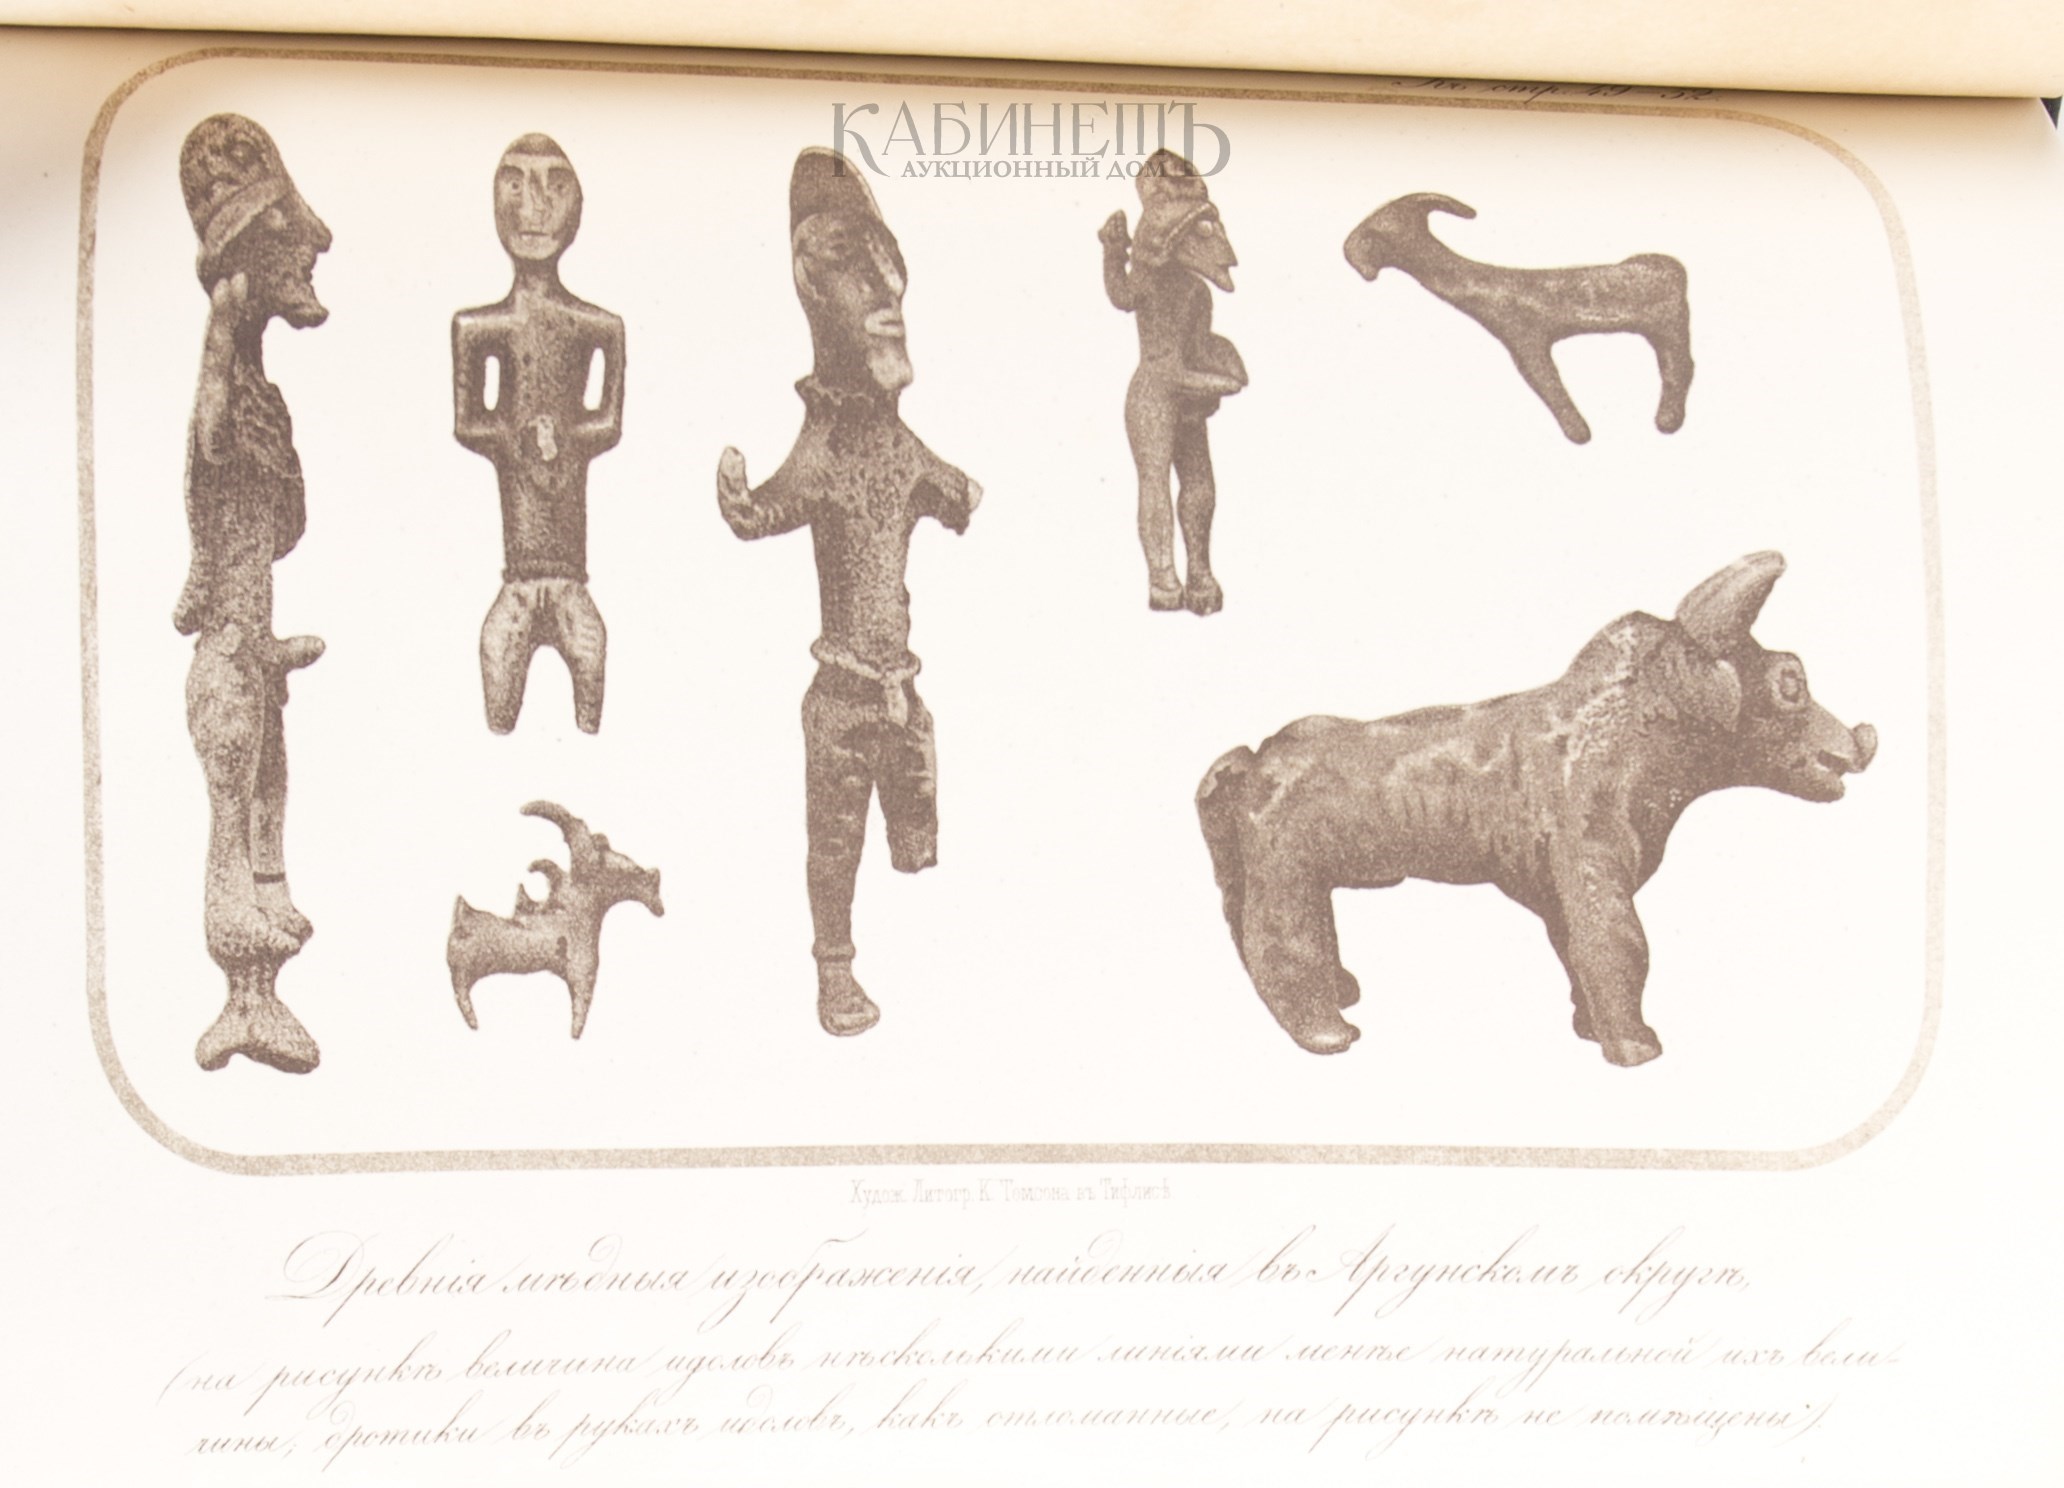 Къ стр. 49–52.
КАБИНЕТЪ
АУКЦИОННЫЙ ДОМ
Худож. Литогр. К. Томсона въ Тифлисѣ
Древнія мѣдныя изображенія, найденныя въ Аргунскомъ округѣ,
(на рисункѣ величина идоловъ нѣсколькими линіями менѣе натуральной ихъ вели-
чины; дротики въ рукахъ идоловъ, какъ отломанные, на рисункѣ не помѣщены).